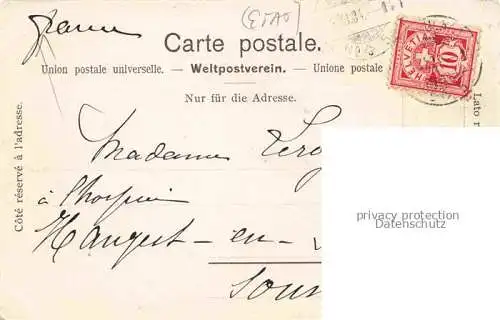 (ETAT)
Carte postale.
Union postale universelle. — Weltpostverein. — Unione postale
Nur für die Adresse.
Côté réservé à l'adresse.
Lato r
HELVETIA
10
Madame
à l'hospice
Hangest-en-
Som
privacy protection
Datenschutz